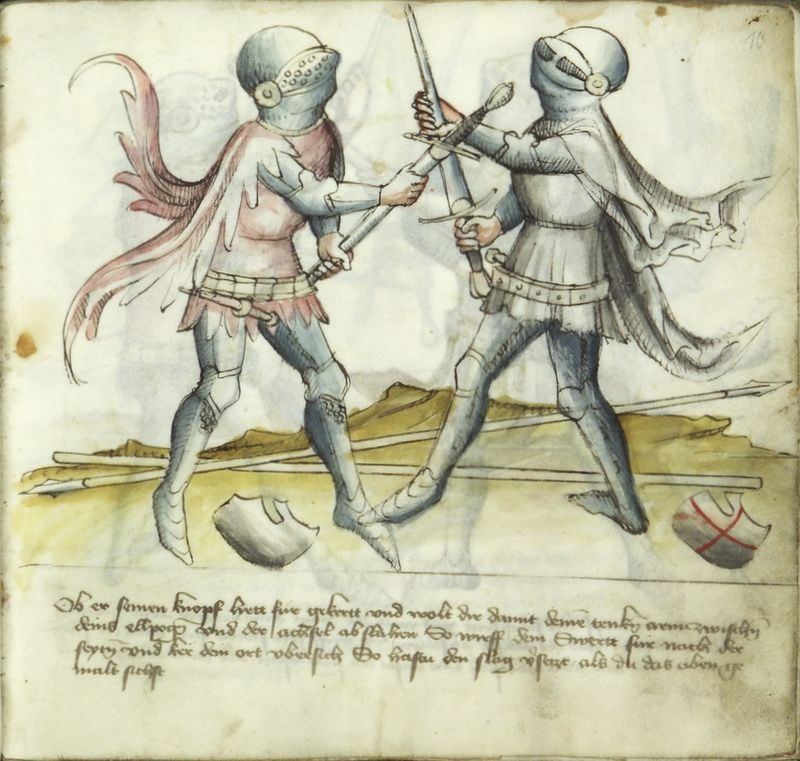 10
Ob er seinen knopf hett für gekertt vnd wolt dir damit deinē tenkn̄ arm zwischn̄
deins ellpogn̄ vnd der achsel abslahen So wirff dein Swertt für nach der
seytn̄ vnd ker dein ort vbersich So hastu den slag v̄setzt als du das oben ge
malt sichst